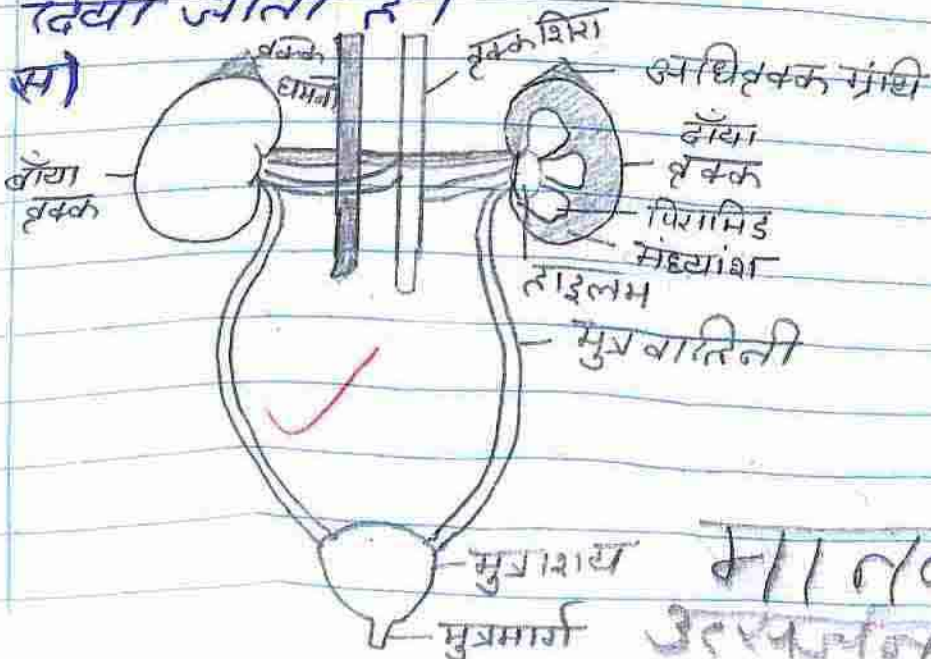 दिया जाता है।
स)
वृक्क
धमनी
वृक्क शिरा
अधिवृक्क ग्रंथि
बाँया
वृक्क
दाँया
वृक्क
पिरामिड
मध्यांश
हाइलम
मुत्र वाहिनी
मुत्राशय
मुत्रमार्ग